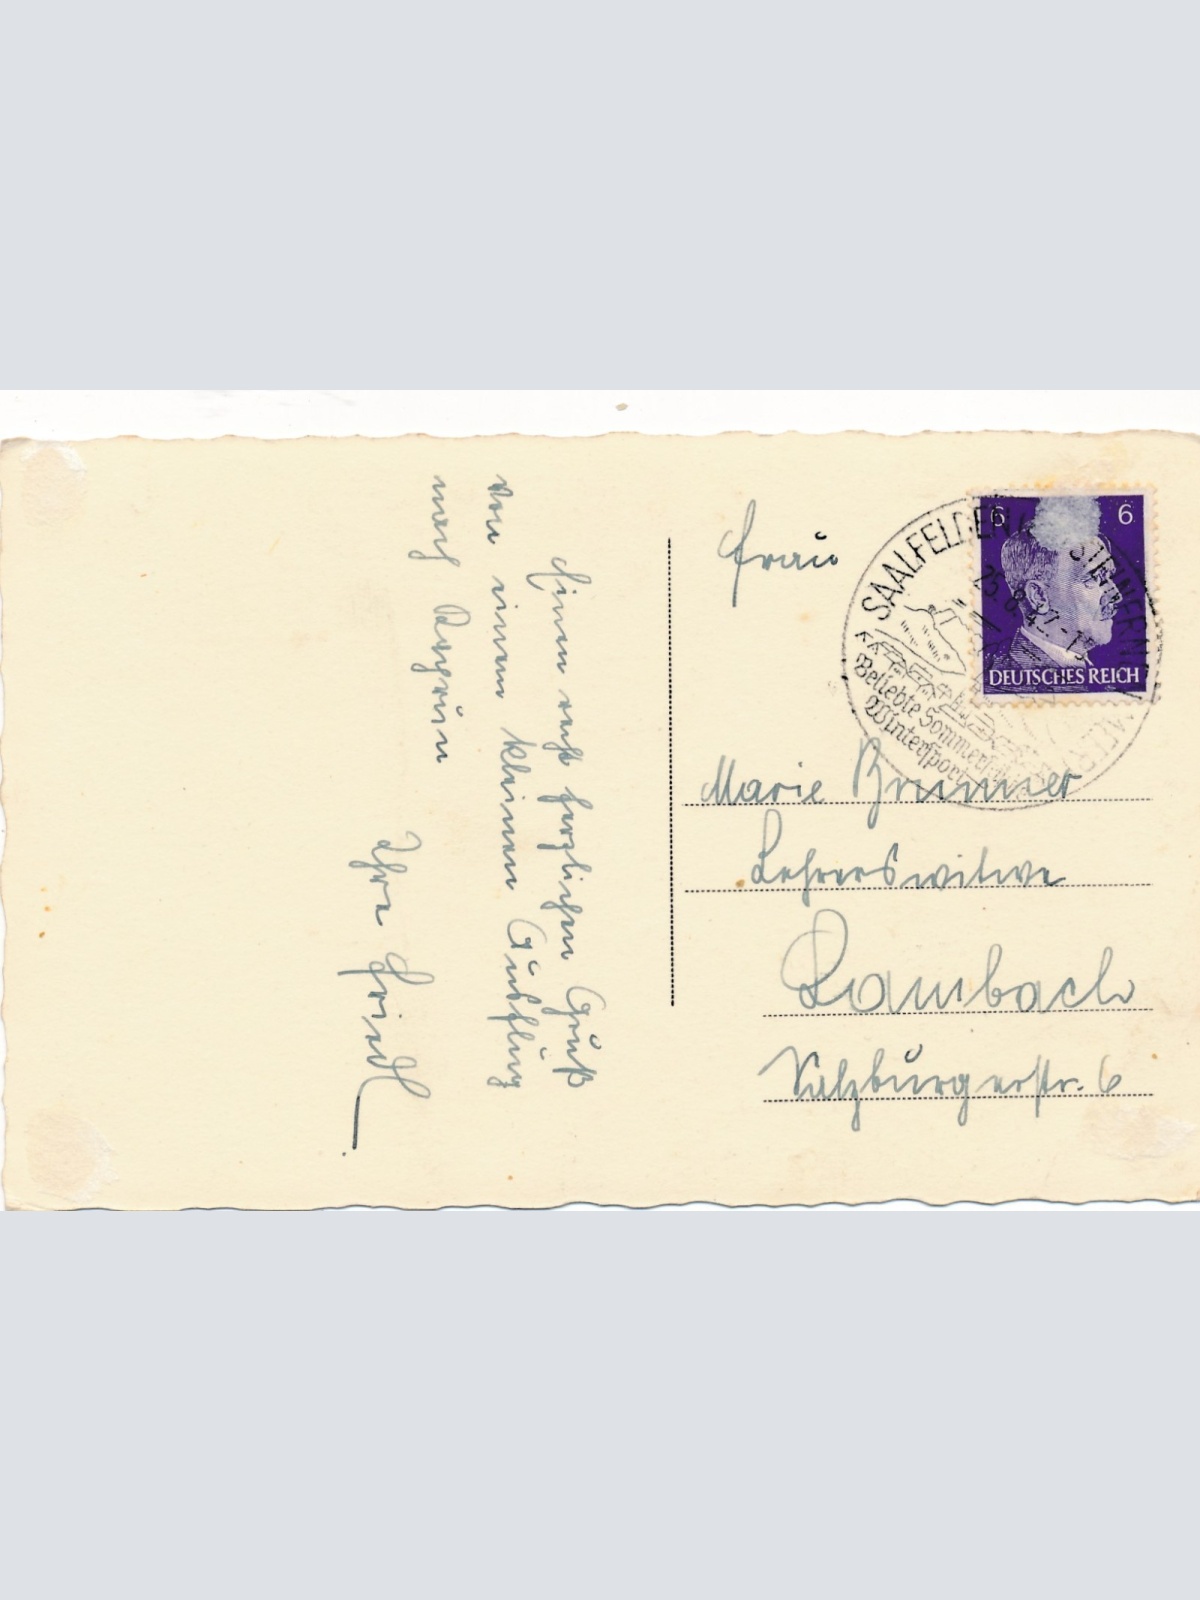 Einen recht herzlichen Gruß
von einem kleinen Ausflug
nach
Ihre Friedl
Frau
Marie Brunner
Lehrerswitwe
Lambach
Salzburgerstr. 6
6 6
DEUTSCHES REICH
SAALFELDEN STEINERN
25.8.42.-15
Beliebte Sommer
Wintersport